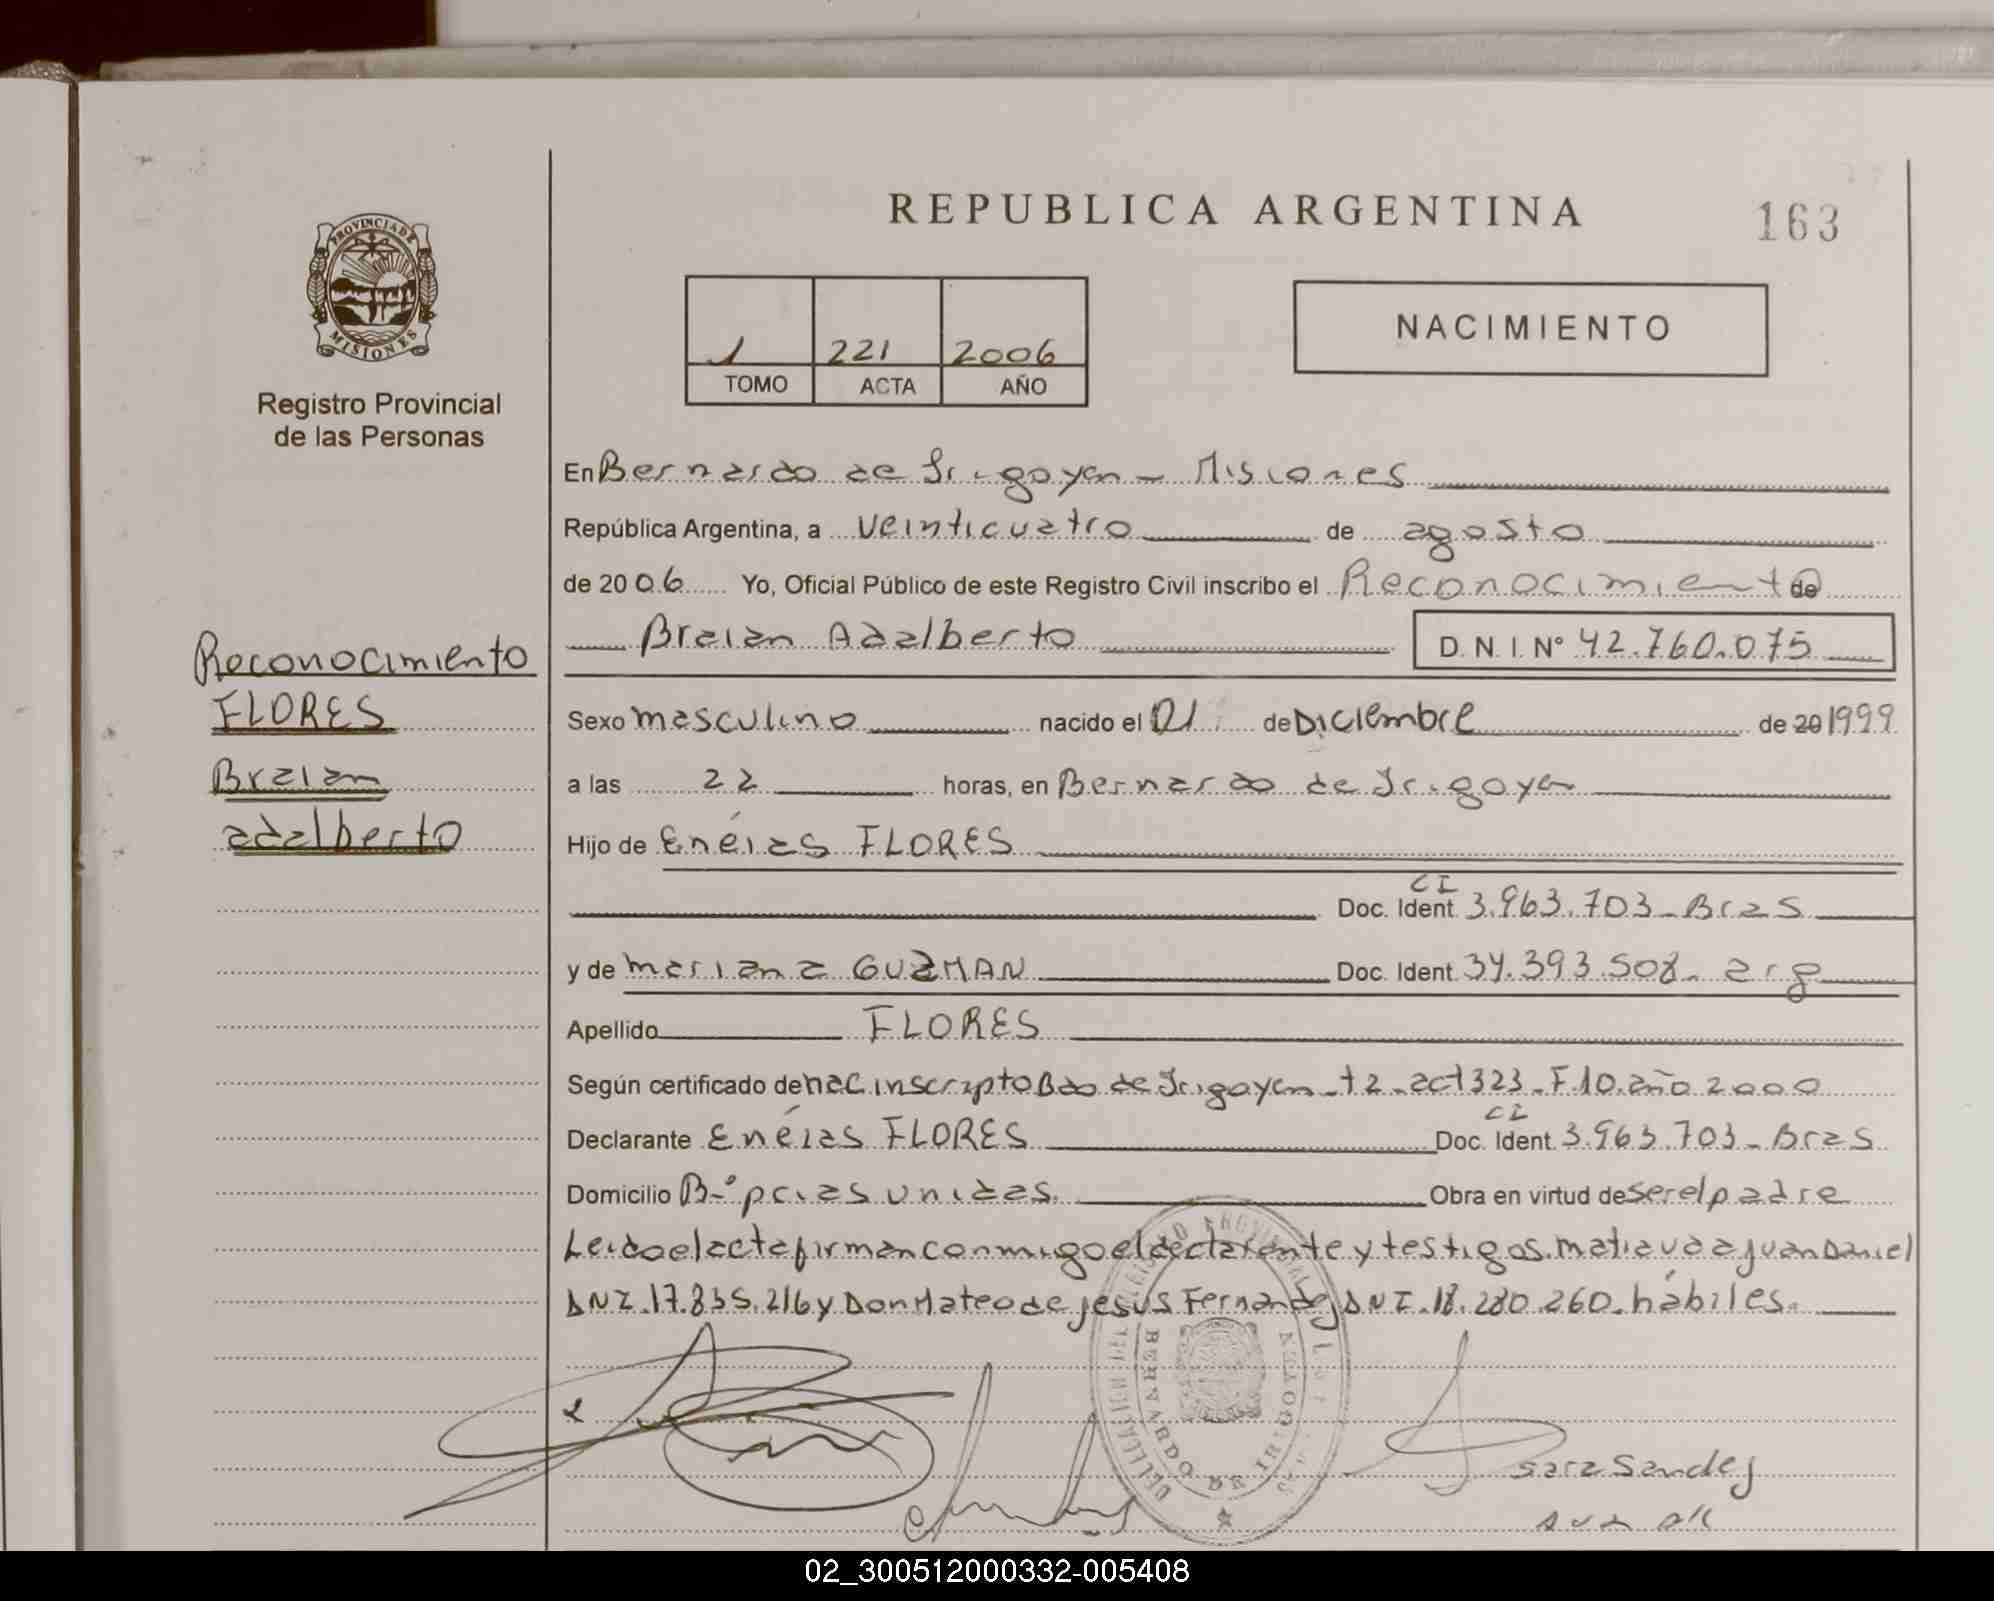 REPUBLICA ARGENTINA
163
PROVINCIA DE
MISIONES
Registro Provincial
de las Personas
1 221 2006
TOMO ACTA AÑO
NACIMIENTO
En Bernardo de Irigoyen - Misiones
República Argentina, a veinticuatro de agosto
de 2006 Yo, Oficial Público de este Registro Civil inscribo el Reconocimiento de
Braian Adalberto D. N. I. Nº 42.760.075
Reconocimiento
FLORES
Braian
adalberto
Sexo masculino nacido el 01 de Diciembre de 20 1999
a las 22 horas, en Bernardo de Irigoyen
Hijo de Enéias FLORES
CI
Doc. Ident. 3.963.703 - Bras
y de mariana GUZMAN Doc. Ident. 34.393.508 - arg
Apellido FLORES
Según certificado de nac inscripto Bdo de Irigoyen - t 2 - act 323 - F. 10. año 2000
CI
Declarante Enéias FLORES Doc. Ident. 3.963.703 - Bras
Domicilio Bº unidas Obra en virtud de ser el padre
Leido el acta firman conmigo el declarante y testigos. Juan Daniel
DNI. 17.835.216 y Don Mateo de jesus Fernandez DNI. 18.280.260. hábiles.
BERNARDO DE IRIGOYEN
sara Sandez
02_300512000332-005408